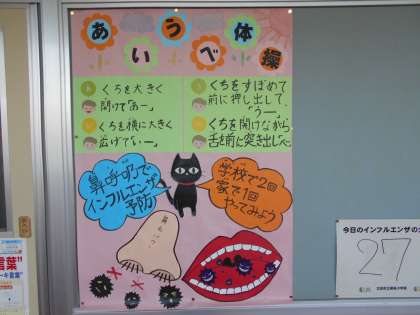 あいうべ体操
くちを大きく
開けて「あー」
くちを横に大きく
広げて「いー」
くちをすぼめて
前に押し出して、
「うー」
くちを開けながら、
舌を前に突き出して
鼻呼吸で
インフルエンザ
予防
学校で2回
家で1回
やってみよう
今日のインフルエンザの
27
言葉"